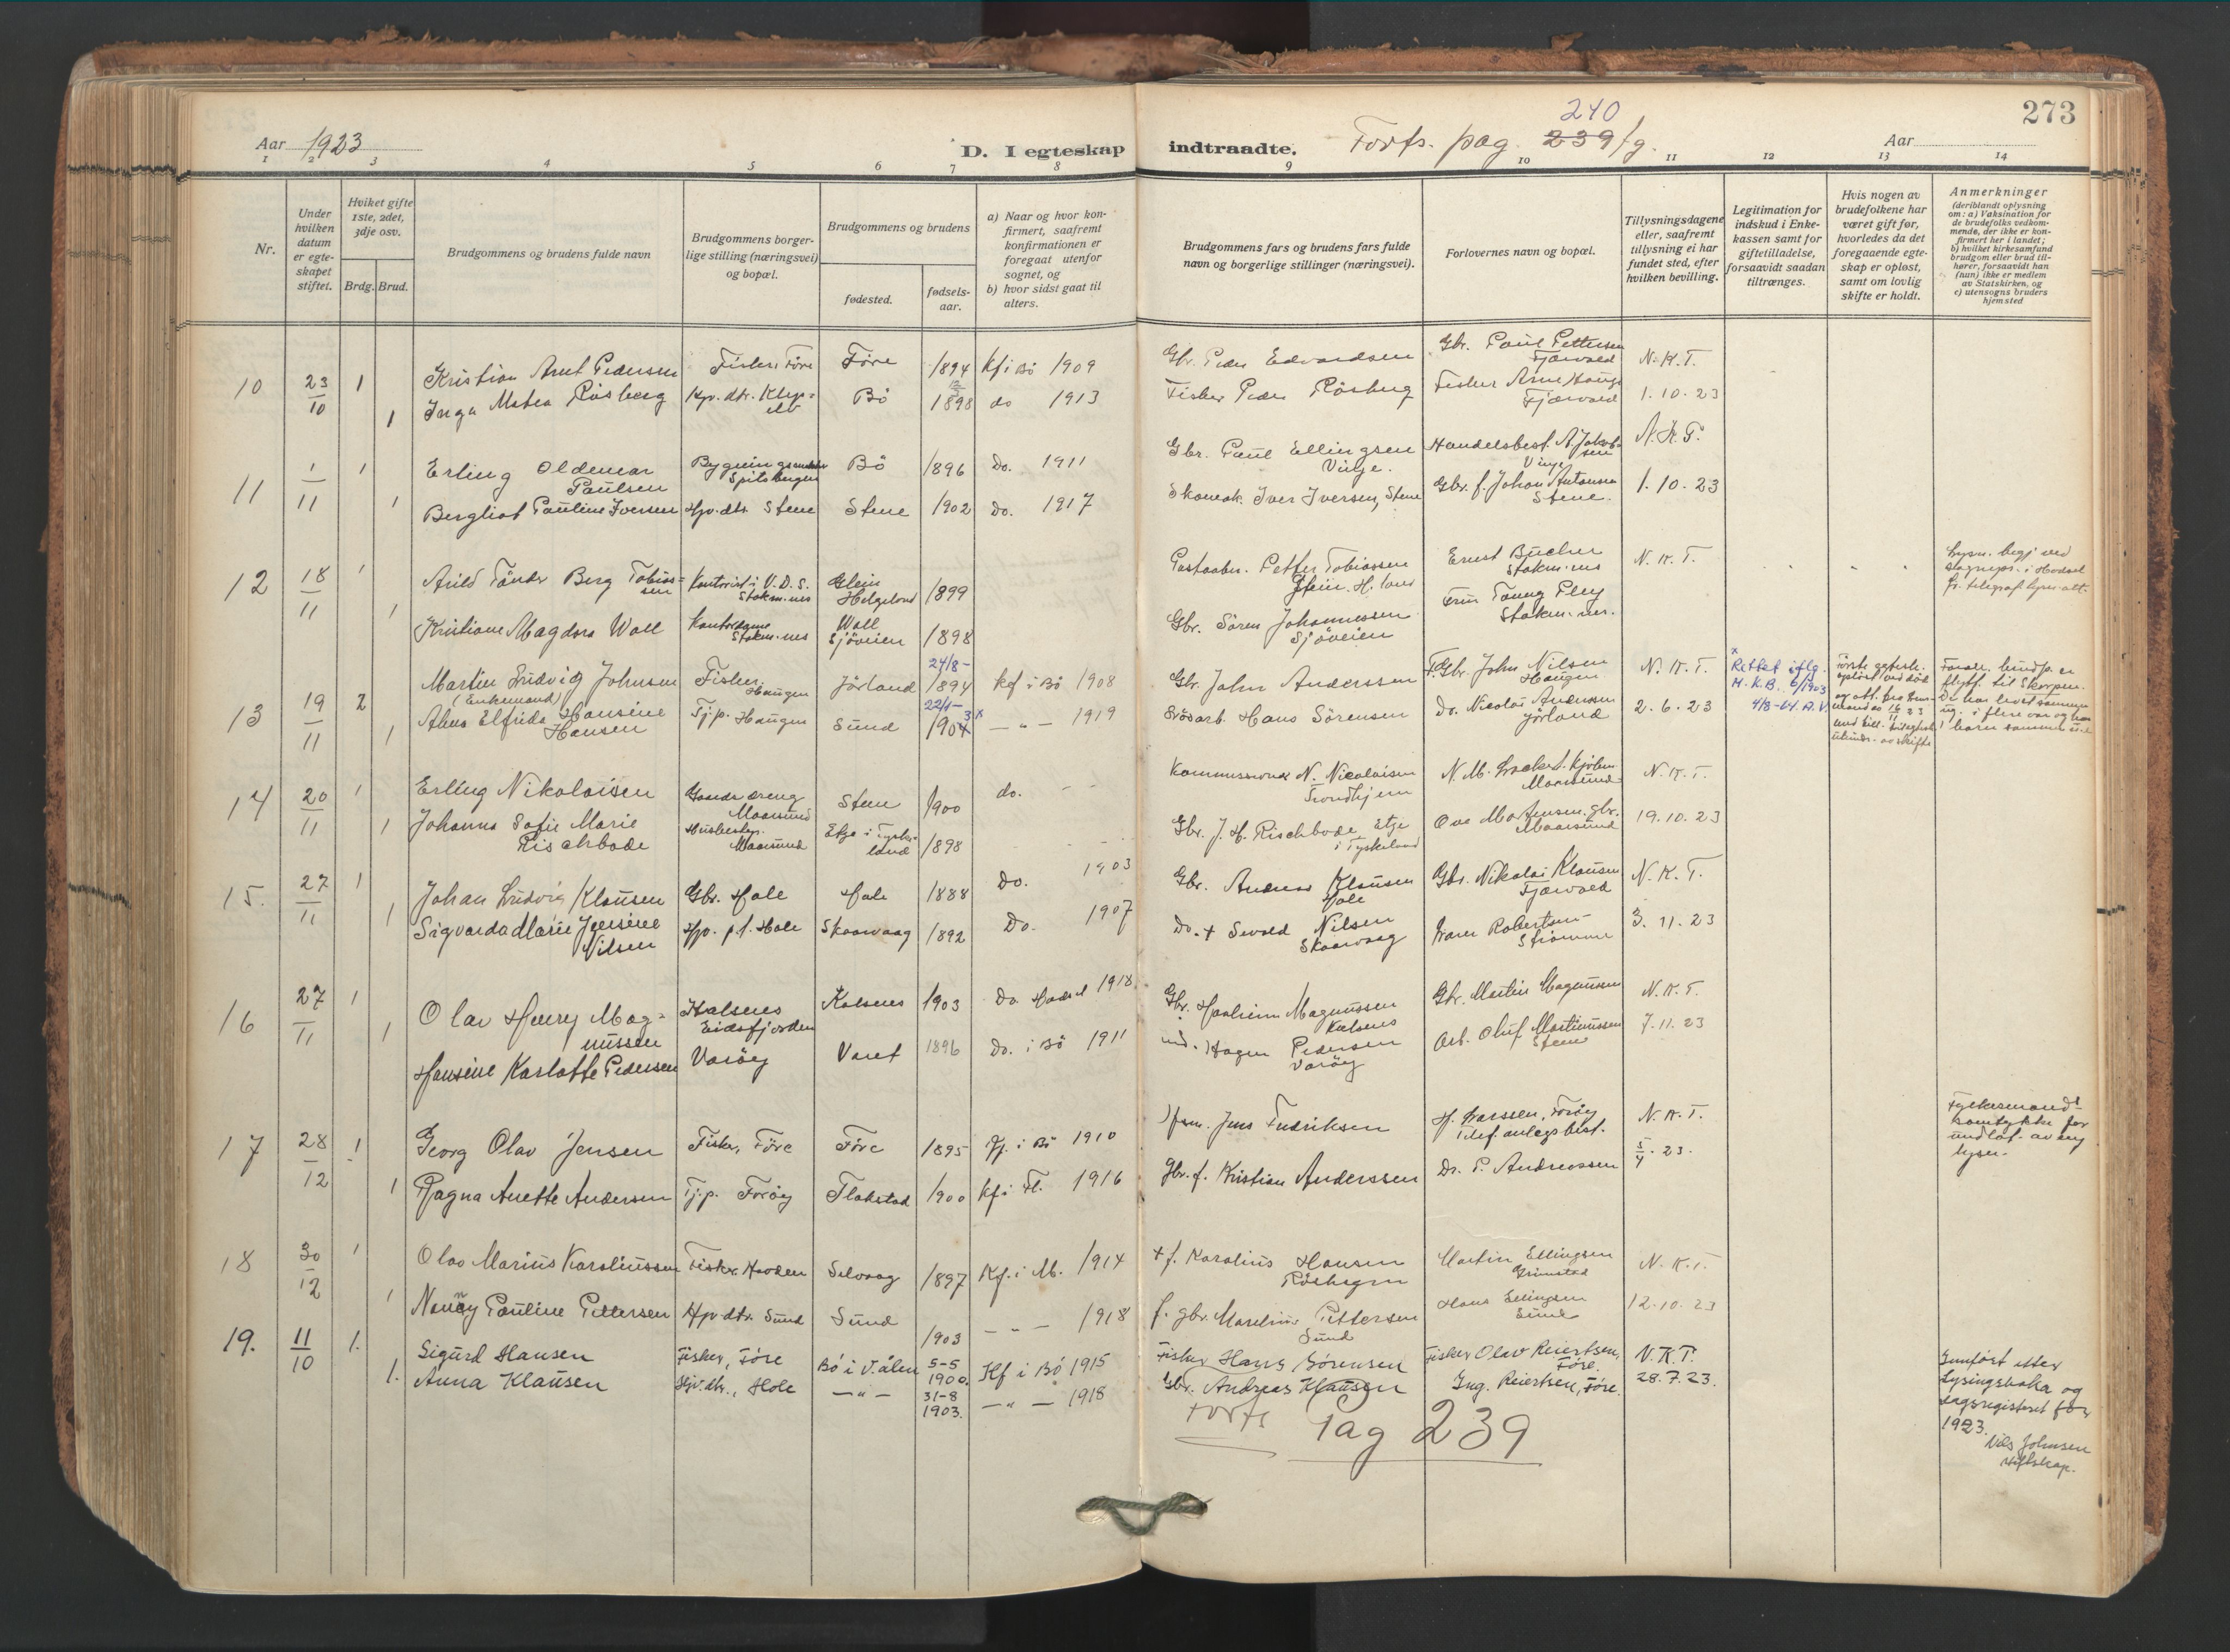 273
Aar 1923
D. I egteskap
indtraadte.
Forts. pag. 239 fg.
240
Aar
1 2 3 4 5 6 7 8 9 10 11 12 13 14
Nr.
Under hvilken datum er egteskapet stiftet.
Hviket gifte 1ste, 2det, 3dje osv.
Brdg. Brud.
Brudgommens og brudens fulde navn
Brudgommens borgerlige stilling (næringsvei) og bopæl.
Brudgommens og brudens
fødested.
fødselsaar.
a) Naar og hvor konfirmert, saafremt konfirmationen er foregaat utenfor sognet, og
b) hvor sidst gaat til alters.
Brudgommens fars og brudens fars fulde navn og borgerlige stillinger (næringsvei).
Forlovernes navn og bopæl.
Tillysningsdagene eller, saafremt tillysning ei har fundet sted, efter hvilken bevilling.
Legitimation for indskud i Enkekassen samt for giftetilladelse, forsaavidt saadan tiltrænges.
Hvis nogen av brudefolkene har været gift før, hvorledes da det foregaaende egteskap er opløst, samt om lovlig skifte er holdt.
Anmerkninger
(deriblandt oplysning om: a) Vaksination for de brudefolks vedkommende, der ikke er konfirmert her i landet; b) hvilket kirkesamfund brudgom eller brud tilhører, forsaavidt han (hun) ikke er medlem av Statskirken, og c) utensogns bruders hjemsted
10 23/10 1 Kristian Arnt Pedersen Fisker, Före Före 1894 Kf i Bö 1909 Gbr. Peder Edvardsen Gbr. Paul Pettersen Fjærvold N. K. T.
1 Inga Matea Rösberg Hjv. dtr. Bö 1898 do 1913 Fisker Peder Fisker Arne Fjærvold 1. 10. 23
11 1/11 1 Erling Oldemar Paulsen Spitsbergen Bö 1896 Do. 1911 Gbr. Paul Ellingsen Vinje. Handelsbest. A. Jakobsen Vinje N. K. T.
1 Bergliot Pauline Iversen Hjv. dtr. Stene Stene 1902 Do. 1917 Iver Iversen, Stene Gbr. f. Johan Antonsen Stene. 1. 10. 23
12 18/11 1 Arild Tönder Berg Tobiassen Kontorist i V. D. S. Stokm.nes Glein Helgeland 1899 Postaabn. Petter Tobiassen Glein H.land Ernst Bucher Stokm.nes N. K. T.
1 Kristiane Magdora Woll Kontordame Stokm.nes Woll Sjöveien 1898 Gbr. Sören Johannessen Sjöveien Stokm.nes.
13 19/11 2 Martin Ludvig Johnsen (Enkemand) Fisker Haugen Jörland 24/8- 1894 Kf i Bö 1908 Gbr. John Anderssen F. Gbr. John Nilsen Haugen N. K. T. x Rettet iflg. M.K.B. 6/1903 4/8-64 A.V.
1 Elfrida Hansine Hansen Tj.p. Haugen Sund 22/1- 1904 3 x — " — 1919 Hans Sörensen Do. Nicolai Andersen Jörland 2. 6. 23
14 20/11 1 Erling Nikolaisen Gaardsdreng Maarsund Stene 1900 do. - - N. Nicolaisen Trondhjem N. M. Lockert, kjöbm. Maarsund N. K. T.
1 Johanna Sofie Marie Rischbode Husbestyr. Maarsund Etje i Tyskland 1898 Gbr. J. H. Rischbode Etje i Tyskeland Ove Mortensen, gbr. Maarsund 19. 10. 23
15. 27/11 1 Johan Ludvig Klausen Gbr. Hole Hole 1888 Do. 1903 Gbr. Andreas Klausen Hole Gbr. Nikolai Klausen Fjærvold N. K. T.
1 Sigvarda Marie Jensine Nilsen Hole Skaarvaag 1892 Do. 1907 Do. + Sevald Nilsen Skaarvaag Strömme 3. 11. 23
16 27/11 1 Olav Henry Magnussen Kalsnes Eidsfjorden Kalsnes 1903 Do Hadsel 1918. Gbr. Magnussen Kalsnes Gbr. Martin Magnussen N. K. T.
1 Hansine Karlotte Pedersen Varöy Varet 1896 Do. i Bö 1911 Hagen Pedersen Varöy Arb. Oluf Martinussen Stene 7. 11. 23
17 28/12 1 Georg Olav Jensen Fisker, Före Före 1895 Kf. i Bö 1910 Jens Fredriksen H. Larssen, Foröy Telef.anlegsbest. N. K. T. Fylkesmands samtykke for undlat. av ny lysn.
1 Ragna Anette Andersen Tj.p. Foröy Flakstad 1900 Kf i Fl. 1916 Gbr. f. Kristian Anderssen Do. P. Andreassen 5/4. 23.
18 30/12 1 Olav Marius Karoliussen Fisker. Hovden Selvaag 1897 Kf. i M. 1914 + f. Karolius Hansen Martin Ellingsen Grimstad N. K. T.
1 Nanny Pauline Pettersen Hjv dtr. Sund Sund 1903 — " — 1918 f. gbr. Marelius Pettersen Sund Hans Ellingsen Sund 12. 10. 23
19. 11/10 1. Sigurd Hansen Fisker, Före Bö i V.ålen 5-5 1900. Kf i Bö 1915 Fisker Hans Sörensen Fisker Olav Reiertsen, Före. N. K. T. Innfört etter lysingsboka og dagsregisteret for 1923. Nils Johnsen
1. Anna Klausen Hjv. dtr., Hole — " — 31-8 1903. — " — 1918 Gbr. Andreas Klausen Ing. Reiertsen, Före. 28. 7. 23.
Forts Pag 239